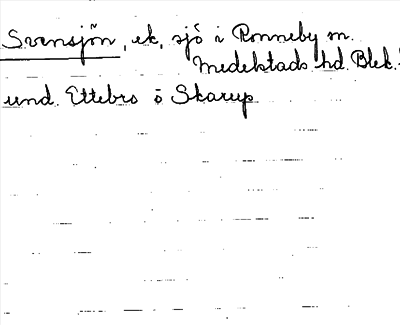 Svensjön, ek, sjö i Ronneby m.
Medelstads hd. Blek.
und. Ettebro o Skarup